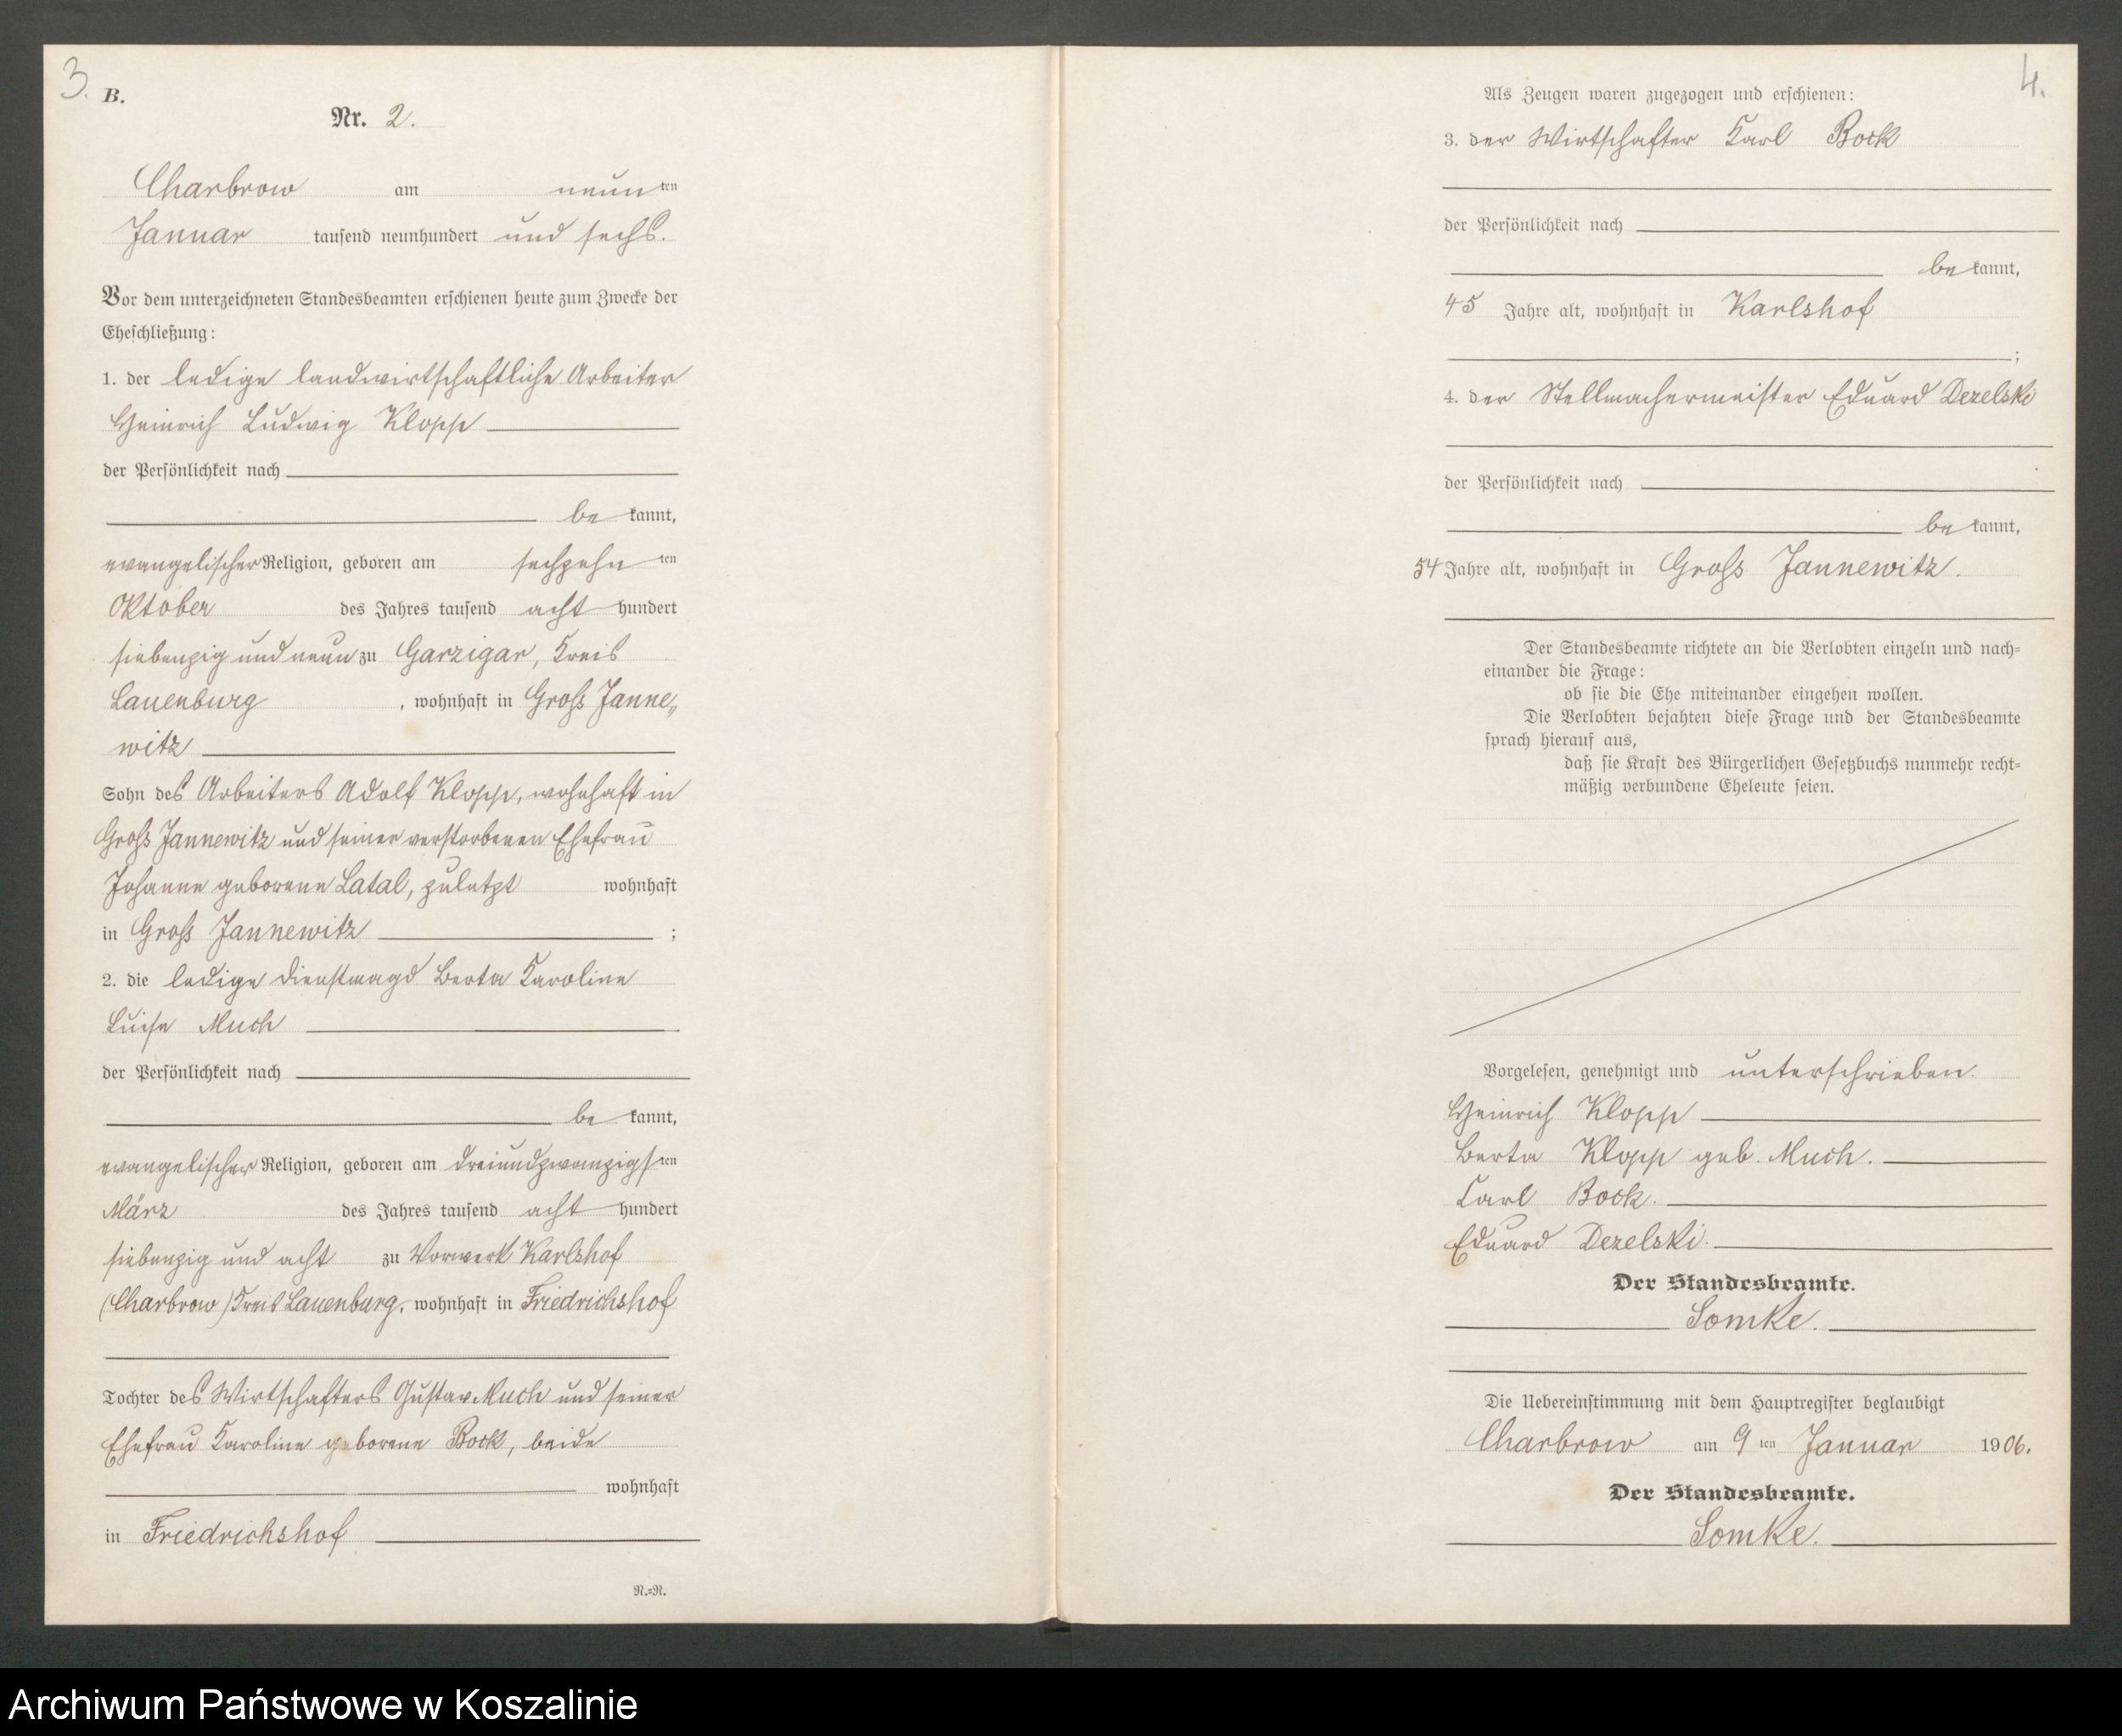 3.
B.
Nr. 2.
Charbrow am neun ten
Januar tausend neunhundert und sechs.
Vor dem unterzeichneten Standesbeamten erschienen heute zum Zwecke der
Eheschließung:
1. der ledige landwirtschaftliche Arbeiter
Heinrich Ludwig Klopp
der Persönlichkeit nach
be kannt,
evangelischer Religion, geboren am sechzehn ten
Oktober des Jahres tausend acht hundert
siebenzig und neun zu Garzigar, Kreis
Lauenburg , wohnhaft in Groß Janne„
witz
Sohn des Arbeiters Adolf Klopp, wohnhaft in
Groß Jannewitz und seiner verstorbenen Ehefrau
Johanne geborene Latal, zuletzt wohnhaft
in Groß Jannewitz ;
2. die ledige Dienstmagd Berta Karoline
Luise Much
der Persönlichkeit nach
be kannt,
evangelischer Religion, geboren am dreiundzwanzigs ten
März des Jahres tausend acht hundert
siebenzig und acht zu Vorwerk Karlshof
(Charbrow) Kreis Lauenburg, wohnhaft in Friedrichshof
Tochter des Wirtschafters Gustav Much und seiner
Ehefrau Karoline geborene Bock, beide
wohnhaft
in Friedrichshof
N.=N.
4.
Als Zeugen waren zugezogen und erschienen:
3. der Wirtschafter Karl Bock
der Persönlichkeit nach
be kannt,
45 Jahre alt, wohnhaft in Karlshof
;
4. der Stellmachermeister Eduard Dezelski
der Persönlichkeit nach
be kannt,
54 Jahre alt, wohnhaft in Groß Jannewitz.
Der Standesbeamte richtete an die Verlobten einzeln und nach=
einander die Frage:
ob sie die Ehe miteinander eingehen wollen.
Die Verlobten bejahten diese Frage und der Standesbeamte
sprach hierauf aus,
daß sie Kraft des Bürgerlichen Gesetzbuchs nunmehr recht=
mäßig verbundene Eheleute seien.
Vorgelesen, genehmigt und unterschrieben.
Heinrich Klopp
Berta Klopp geb. Much.
Carl Bock.
Eduard Dezelski.
Der Standesbeamte.
Somke.
Die Uebereinstimmung mit dem Hauptregister beglaubigt
Charbrow am 9 ten Januar 1906.
Der Standesbeamte.
Somke.
Archiwum Państwowe w Koszalinie